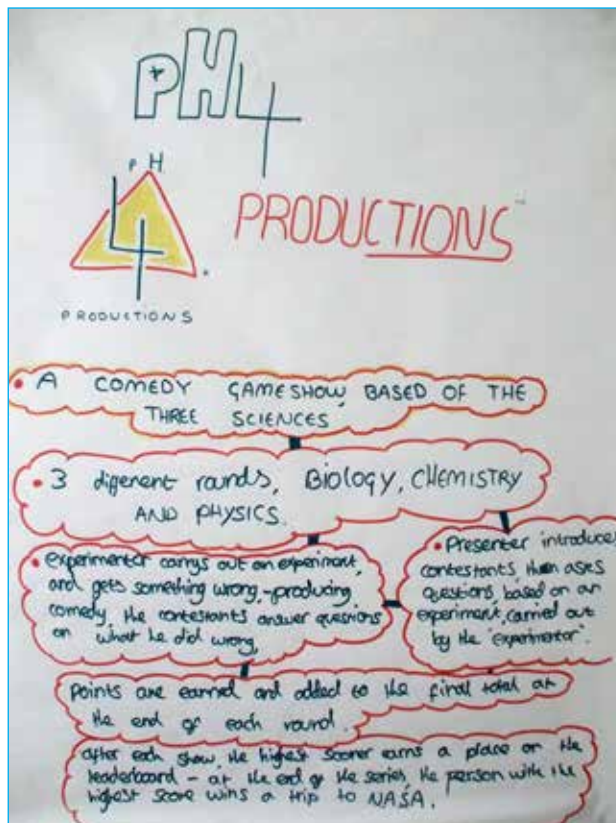 PH4
PH
4
PRODUCTIONS
PRODUCTIONS
• A COMEDY GAMESHOW, BASED OF THE
THREE SCIENCES
• 3 different rounds, BIOLOGY, CHEMISTRY
AND PHYSICS.
• experimentor carrys out an experiment,
and gets something wrong, -producing
comedy, the contestants answer questions
on what he did wrong,
• Presenter introduces
contestants, then asks
questions, based on an
experiment, carried out
by the 'experimentor'.
Points are earned and added to the final total at
the end of each round.
after each show, the highest scorer earns a place on the
leaderboard - at the end of the series, the person with the
highest score wins a trip to NASA.